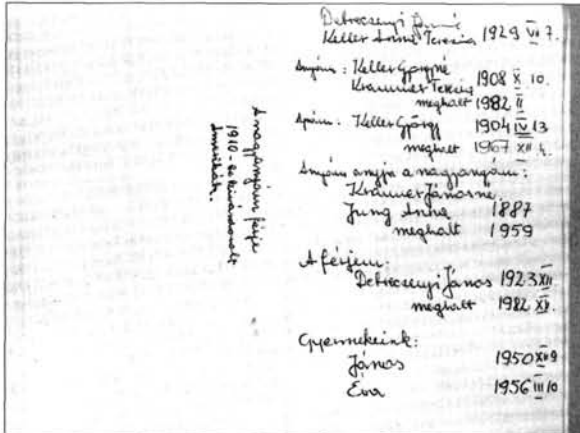 Debreczenyi Jánosné
Keller Anna Terézia 1929 VI 7.
Anyám: Keller Györgyné
Krammer Terézia 1908 X. 10.
meghalt 1982 II
Apám: Keller György 1904 IV 13
meghalt 1967 XII 4.
Anyám anyja a nagyanyám:
Krammer Jánosné
Jung Anna 1887
meghalt 1959
A férjem:
Debreczenyi János 1923 XII
meghalt 1982 XI
Gyermekeink:
János 1950 XII 9
Éva 1956 III 10
A nagyanyám férje
1910-ben kivándorolt
Amerikába.